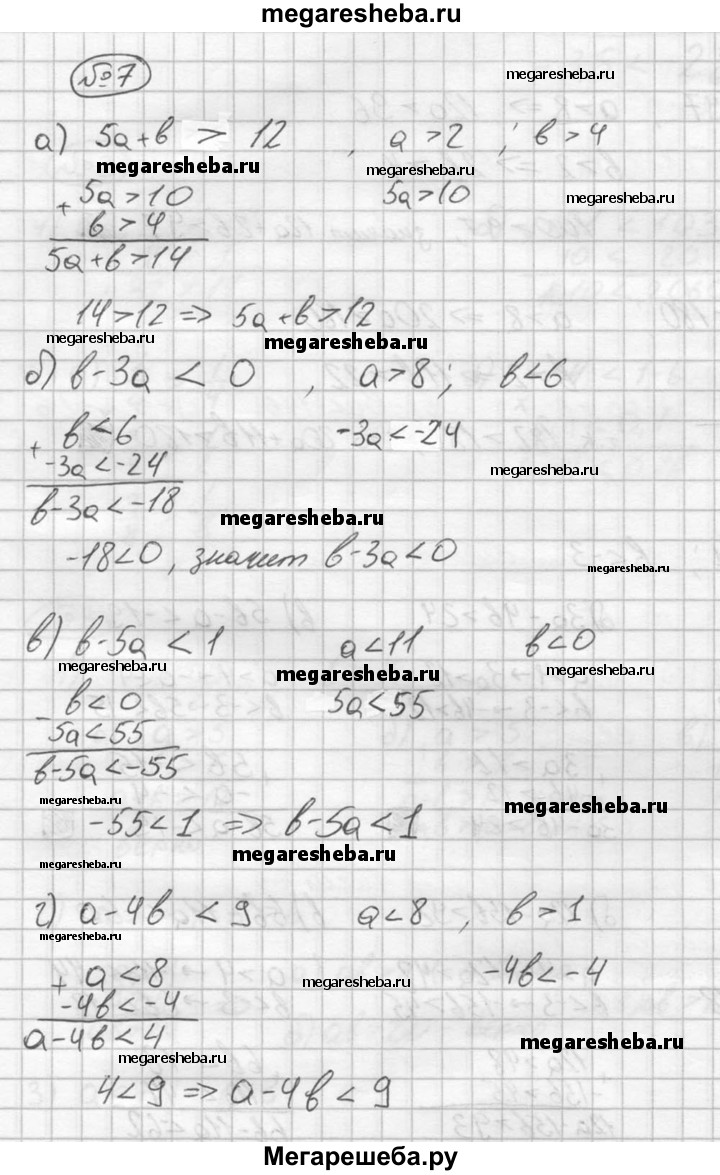 megaresheba.ru
№7
megaresheba.ru
а) 5a+b > 12 , a>2 ; b>4
megaresheba.ru megaresheba.ru
+ 5a>10 5a>10 megaresheba.ru
b>4
5a+b>14
14>12 => 5a+b>12
megaresheba.ru megaresheba.ru
б) b-3a < 0 , a>8; b<6
+ b<6 -3a<-24
-3a<-24 megaresheba.ru
b-3a<-18
megaresheba.ru
-18<0, значит b-3a<0
megaresheba.ru
в) b-5a<1 a<11 b<0
megaresheba.ru megaresheba.ru megaresheba.ru
- b<0 5a<55
5a<55
b-5a<-55
megaresheba.ru megaresheba.ru
-55<1 => b-5a<1
megaresheba.ru
megaresheba.ru
г) a-4b<9 a<8 , b>1
megaresheba.ru
+ a<8 megaresheba.ru -4b<-4
-4b<-4
a-4b<4 megaresheba.ru
megaresheba.ru
4<9 => a-4b<9
Мегарешеба.ру